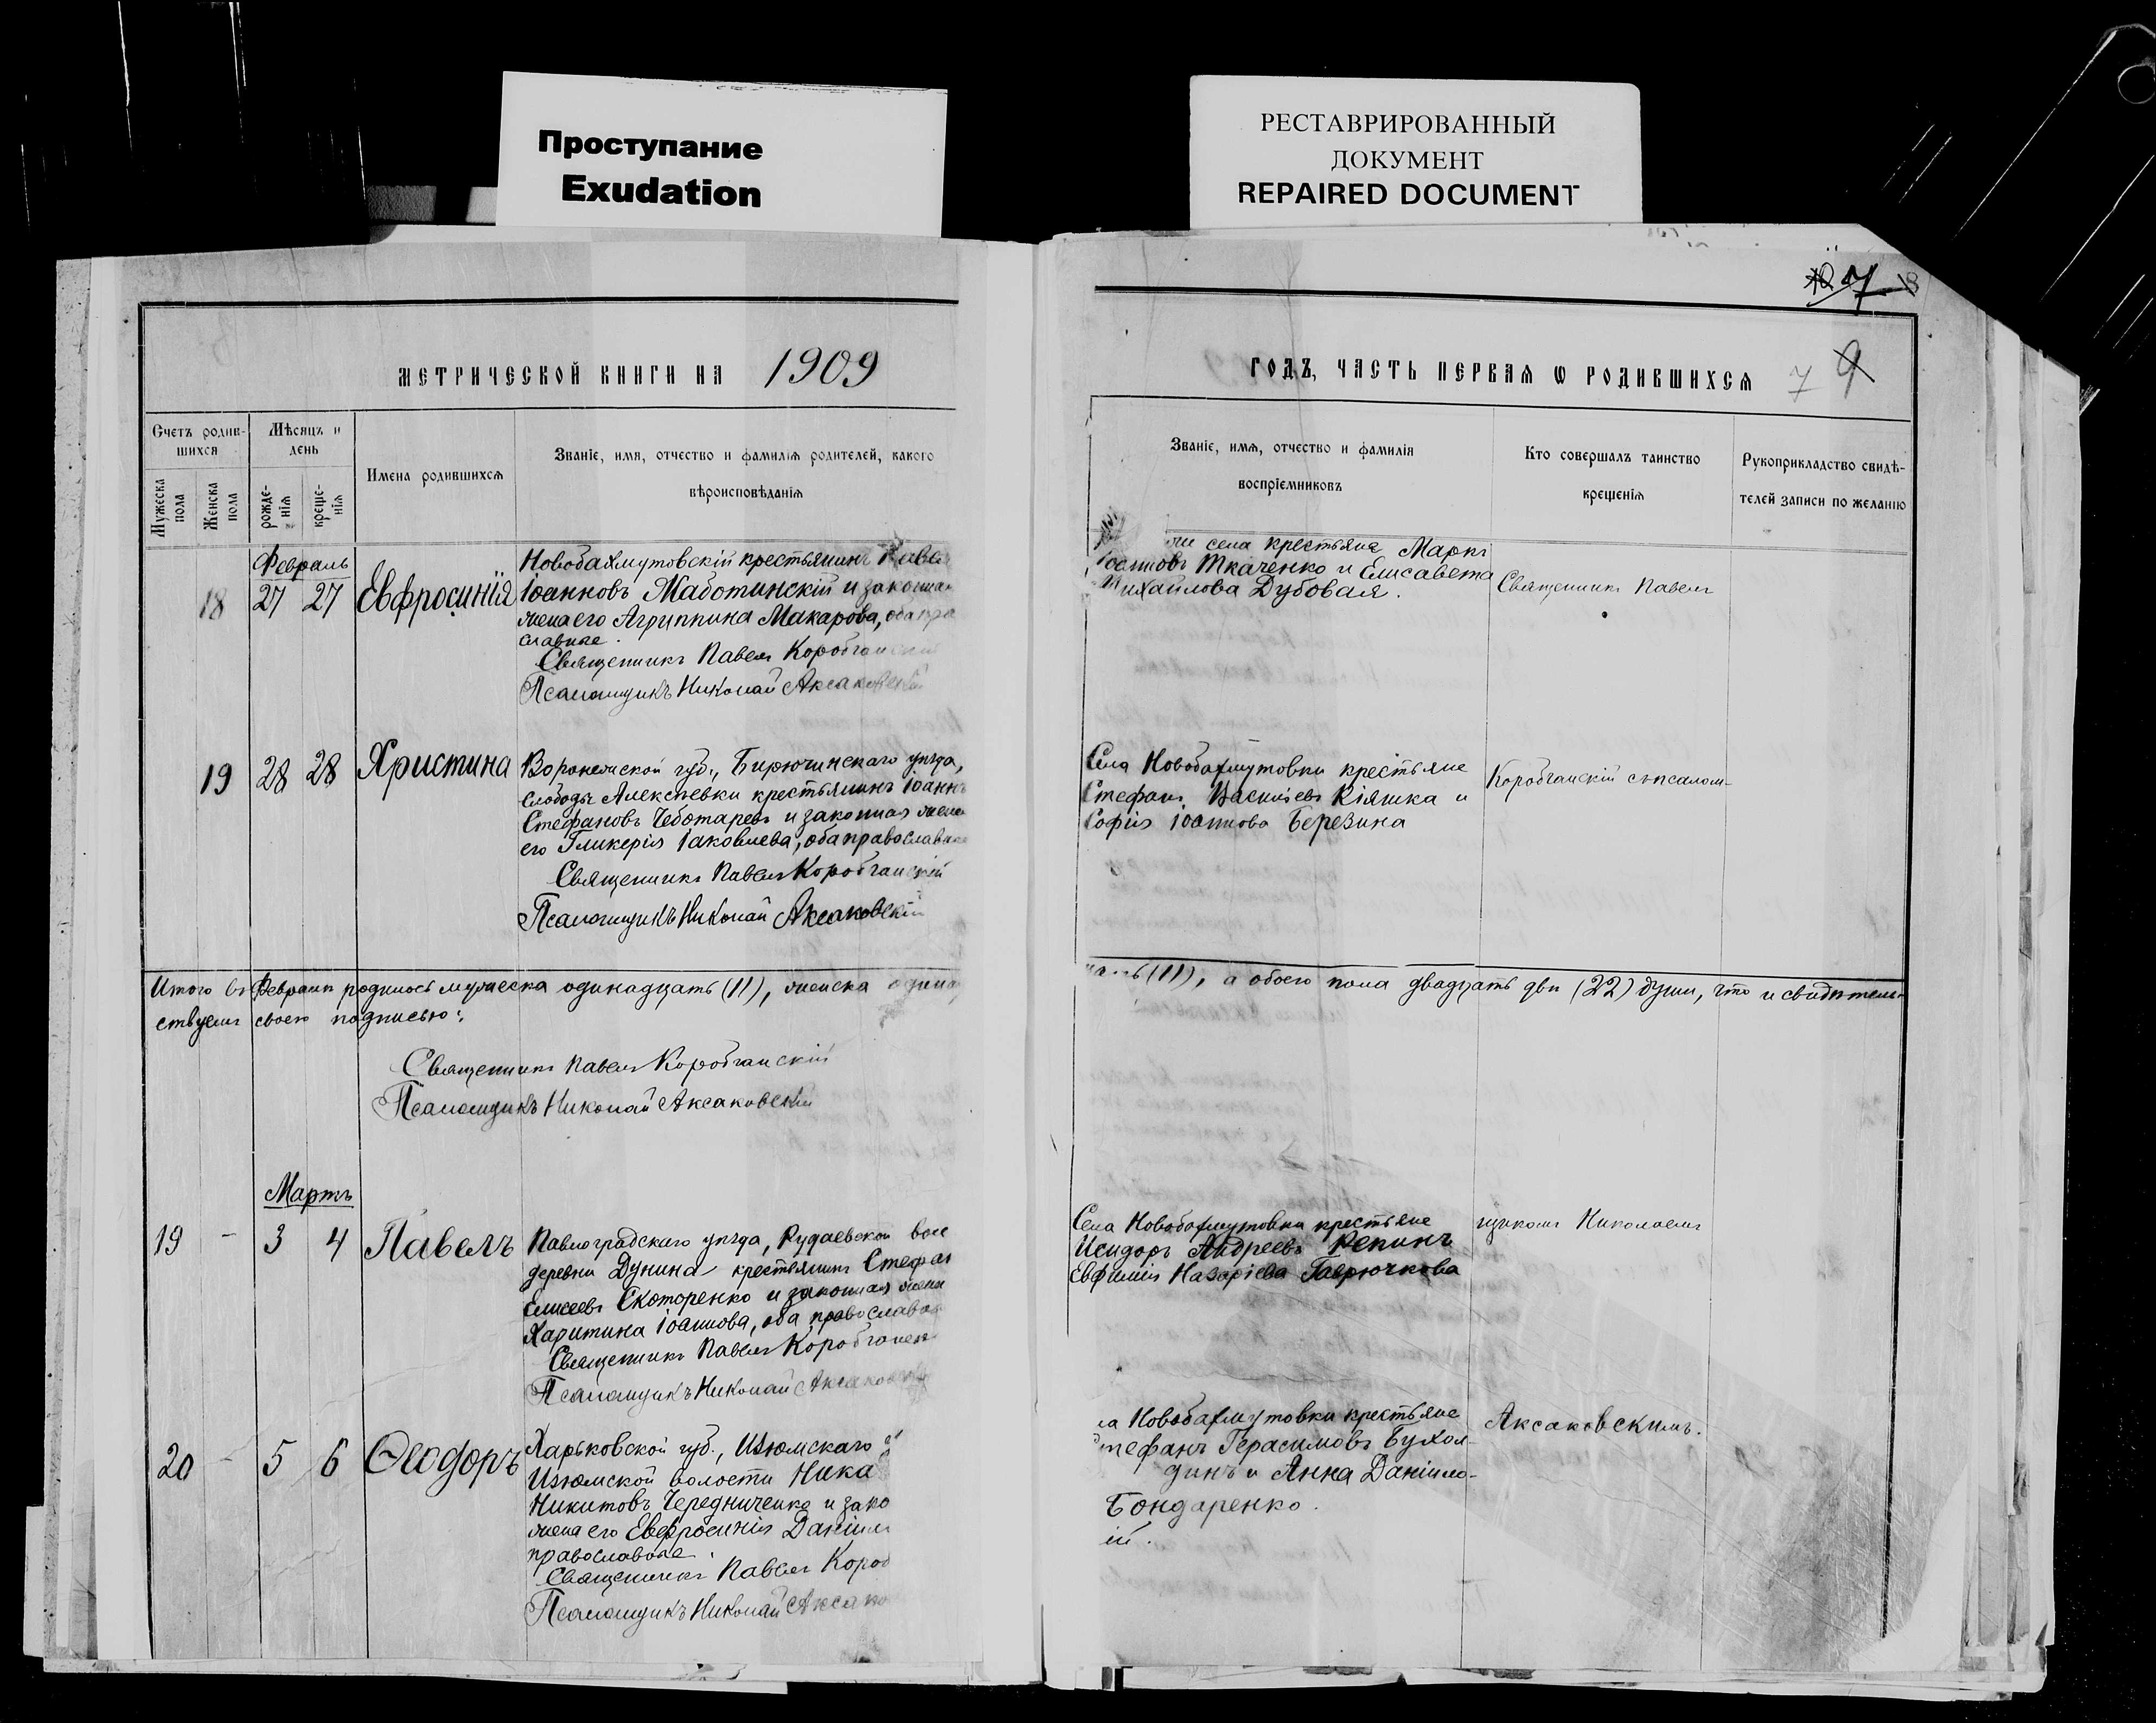 Проступание
Exudation
РЕСТАВРИРОВАННЫЙ
ДОКУМЕНТ
REPAIRED DOCUMENT
МЕТРИЧЕСКОЙ КНИГИ НА 1909
Счетъ родив-
шихся
Мѣсяцъ и
день
Мужеска
пола
Женска
пола
рожде-
нія
креще-
нія
Имена родившихся
Званіе, имя, отчество и фамилія родителей, какого
вѣроисповѣданія
Февраль
18 27 27 Евфросинія
Новобахмутовскій крестьянинъ
Іоанновъ Жаботинскій и
жена его Агриппина Макарова, оба
славные.
Священникъ Павелъ
Псаломщикъ Николай Аксаковскій
19 28 28 Христина
Воронежской губ., Бирюченскаго уѣзда,
слободы Алексѣевки крестьянинъ Іоаннъ
Стефановъ Чеботаревъ и законная жена
его Гликерія Іаковлева, оба православные
Священникъ Павелъ Коробчанскій
Псаломщикъ Николай Аксаковскій
Итого въ Февралѣ родилось мужеска одинадцать (11), женска
ствуемъ своею подписью:
Священникъ Павелъ Коробчанскій
Псаломщикъ Николай Аксаковскій
Мартъ
19 - 3 4 Павелъ
Павлоградскаго уѣзда, Рудаевской вол
деревни Дунина крестьянинъ Стефан
Елисеевъ Скоторенко и законная жена
Харитина Іоаннова, оба православн
Священникъ Павелъ Коробчанск
Псаломщикъ Николай
20 - 5 6 Ѳеодоръ
Харьковской губ., Изюмскаго
Изюмской волости Ника
Никитовъ Чередниченко и зако
жена его Евфросинія Даніил
православные.
Священникъ Павелъ Короб
Псаломщикъ Николай Аксако
7
ГОДЪ, ЧАСТЬ ПЕРВАЯ Ѡ РОДИВШИХСЯ 7 9
Званіе, имя, отчество и фамилія
воспріемниковъ
Кто совершалъ таинство
крещенія
Рукоприкладство свидѣ-
телей записи по желанію
села крестьяне Маркъ
Ткаченко и Елисавета
Михайлова Дубовая.
Священникъ Павелъ
Села Новобахмутовки крестьяне
Стефанъ Васильевъ Кіяшка и
Софія Іоаннова Березина
Коробчанскій съ псалом-
(11), а обоего пола двадцать двѣ (22) души, что и свидѣтель-
Села Новобахмутовки крестьяне
Исидоръ Андреевъ Репинъ
Евфимія Назаріева Гаврючкова
щикомъ Николаемъ
ла Новобахмутовки крестьяне
тефанъ Герасимовъ Бухол-
динъ и Анна Даніило-
Бондаренко.
ій.
Аксаковскимъ.